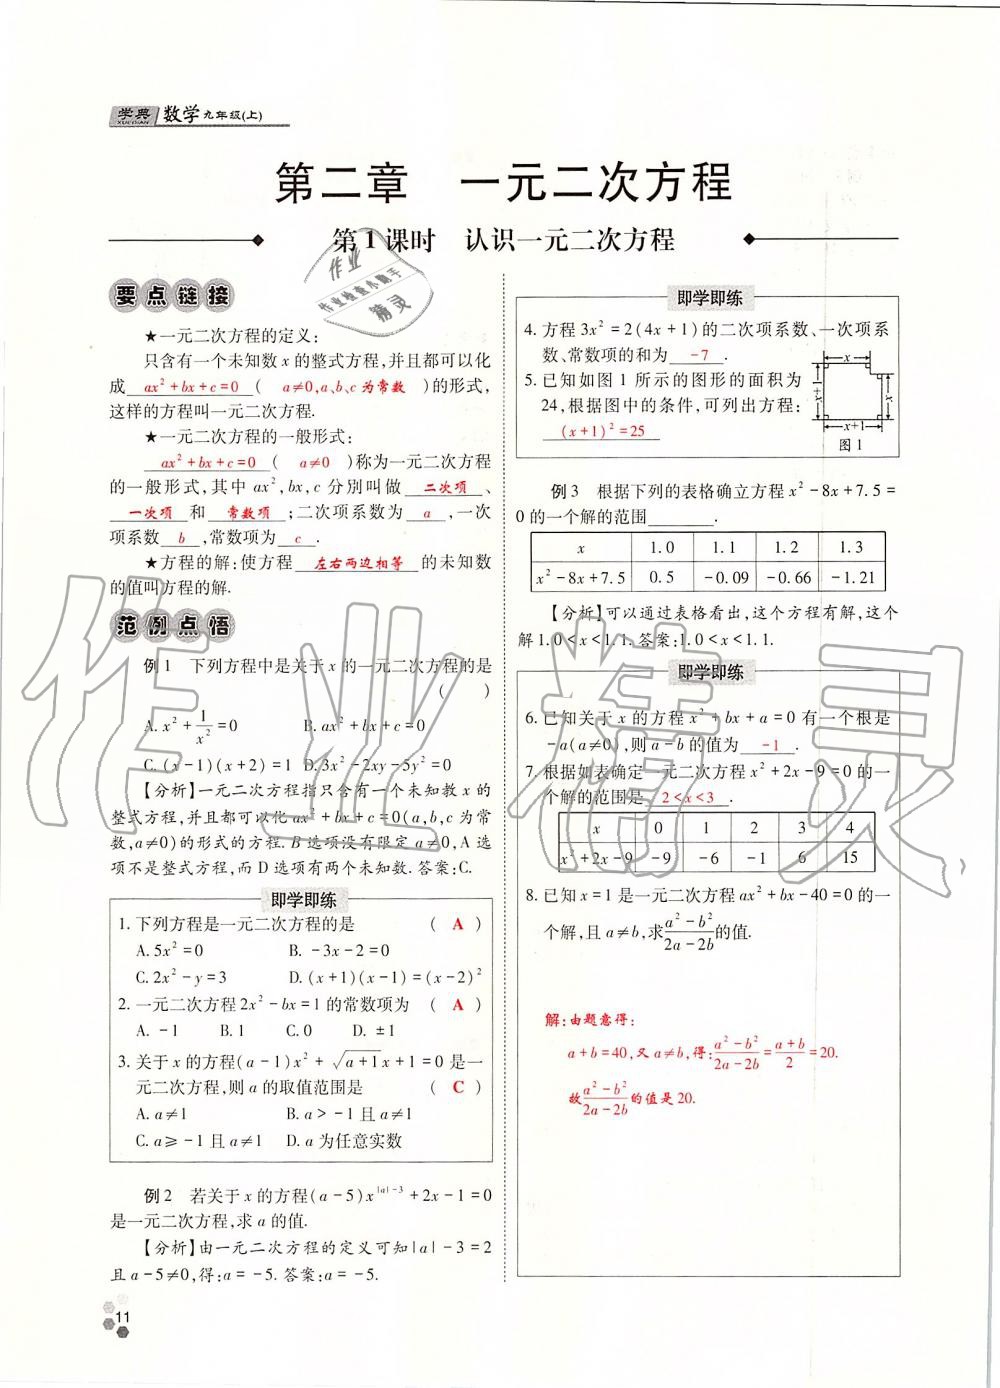 学典 数学九年级(上)
XUEDIAN
第二章 一元二次方程
第1课时 认识一元二次方程
要点链接
★一元二次方程的定义:
只含有一个未知数 x 的整式方程,并且都可以化
成 ax²+bx+c=0 ( a≠0,a、b、c为常数 )的形式,
这样的方程叫一元二次方程.
★一元二次方程的一般形式:
ax²+bx+c=0 ( a≠0 )称为一元二次方程
的一般形式,其中 ax²,bx,c 分别叫做 二次项 、
一次项 和 常数项 ;二次项系数为 a ,一次
项系数 b ,常数项为 c .
★方程的解:使方程 左右两边相等 的未知数
的值叫方程的解.
范例点悟
例1 下列方程中是关于 x 的一元二次方程的是
( )
A. x²+1/x²=0 B. ax²+bx+c=0
C. (x-1)(x+2)=1 D. 3x²-2xy-5y²=0
【分析】一元二次方程指只含有一个未知教 x 的
整式方程,并且都可以化 ax²+bx+c=0(a,b,c 为常
数,a≠0)的形式的方程.B 选项没有限定 a≠0,A 选
项不是整式方程,而 D 选项有两个未知数.答案:C.
即学即练
1. 下列方程是一元二次方程的是 ( A )
A. 5x²=0 B. -3x-2=0
C. 2x²-y=3 D. (x+1)(x-1)=(x-2)²
2. 一元二次方程 2x²-bx=1 的常数项为 ( A )
A. -1 B. 1 C. 0 D. ±1
3. 关于 x 的方程(a-1)x²+√(a+1)x+1=0 是一
元二次方程,则 a 的取值范围是 ( C )
A. a≠1 B. a>-1 且 a≠1
C. a≥-1 且 a≠1 D. a 为任意实数
例2 若关于 x 的方程(a-5)x^(|a|-3)+2x-1=0
是一元二次方程,求 a 的值.
【分析】由一元二次方程的定义可知|a|-3=2
且 a-5≠0,得:a=-5.答案:a=-5.
11
即学即练
4. 方程 3x²=2(4x+1)的二次项系数、一次项系
数、常数项的和为 -7 .
5. 已知如图 1 所示的图形的面积为
24,根据图中的条件,可列出方程:
(x+1)²=25
x
x+1
x
x+1
图1
例3 根据下列的表格确立方程 x²-8x+7.5=
0 的一个解的范围 .
x 1.0 1.1 1.2 1.3
x²-8x+7.5 0.5 -0.09 -0.66 -1.21
【分析】可以通过表格看出,这个方程有解,这个
解 1.0<x<1.1.答案:1.0<x<1.1.
即学即练
6. 已知关于 x 的方程 x²+bx+a=0 有一个根是
-a(a≠0),则 a-b 的值为 -1 .
7. 根据如表确定一元二次方程 x²+2x-9=0 的一
个解的范围是 2<x<3 .
x 0 1 2 3 4
x²+2x-9 -9 -6 -1 6 15
8. 已知 x=1 是一元二次方程 ax²+bx-40=0 的一
个解,且 a≠b,求(a²-b²)/(2a-2b)的值.
解:由题意得:
a+b=40,又 a≠b,得:(a²-b²)/(2a-2b)=(a+b)/2=20.
故(a²-b²)/(2a-2b)的值是20.
作业
作业检查小助手
精灵
作业精灵